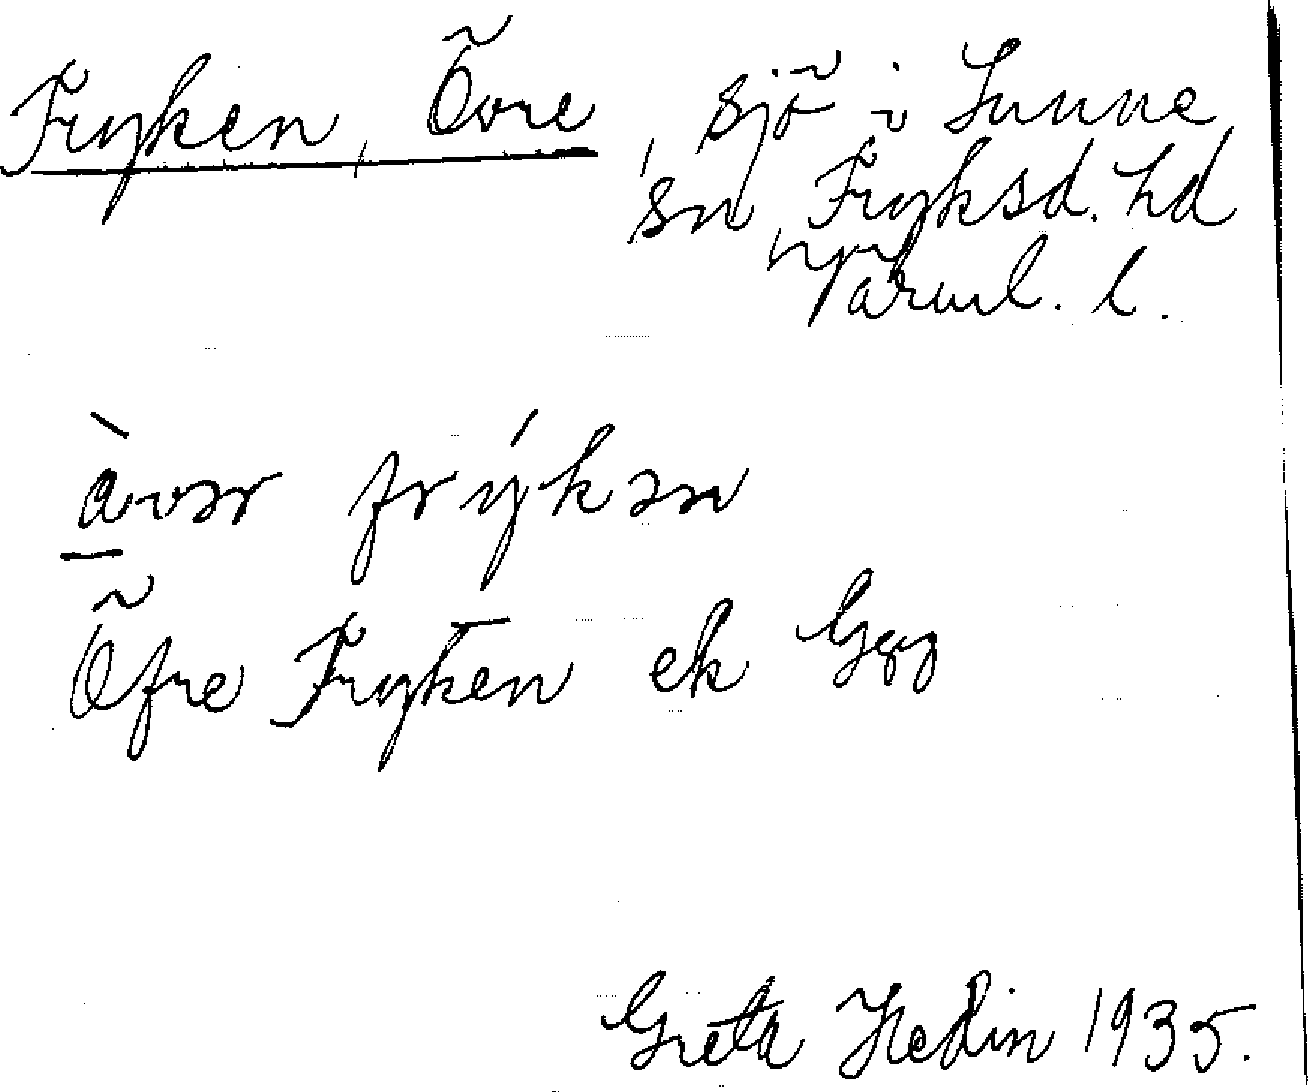 Fryken, Övre, sjö i Sunne
sn, Fryksd. hd
Värml. l.
à̲vər frýkən
Öfre Fryken ek Ggg
Greta Hedin 1935.